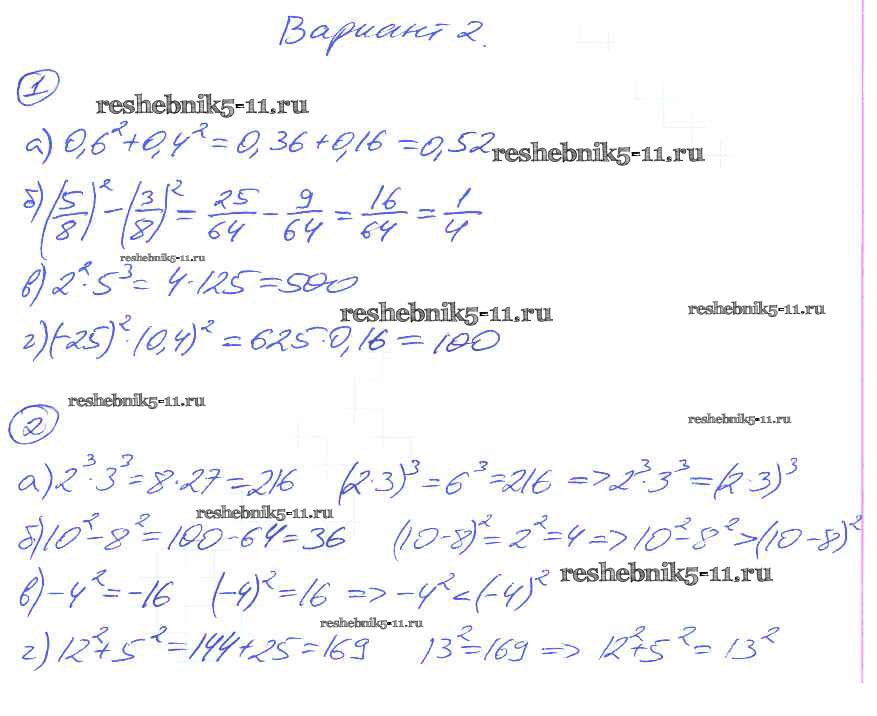 Вариант 2.
①
reshebnik5-11.ru
а) 0,6²+0,4²=0,36+0,16=0,52
reshebnik5-11.ru
б) (5/8)²-(3/8)²=25/64-9/64=16/64=1/4
reshebnik5-11.ru
в) 2²·5³=4·125=500
reshebnik5-11.ru
reshebnik5-11.ru
г) (-25)²·(0,4)²=625·0,16=100
reshebnik5-11.ru
②
reshebnik5-11.ru
а) 2³·3³=8·27=216 (2·3)³=6³=216 => 2³·3³=(2·3)³
reshebnik5-11.ru
б) 10²-8²=100-64=36 (10-8)²=2²=4=>10²-8²>(10-8)²
в) -4²=-16 (-4)²=16 => -4²<(-4)²
reshebnik5-11.ru
reshebnik5-11.ru
г) 12²+5²=144+25=169 13²=169 => 12²+5²=13²